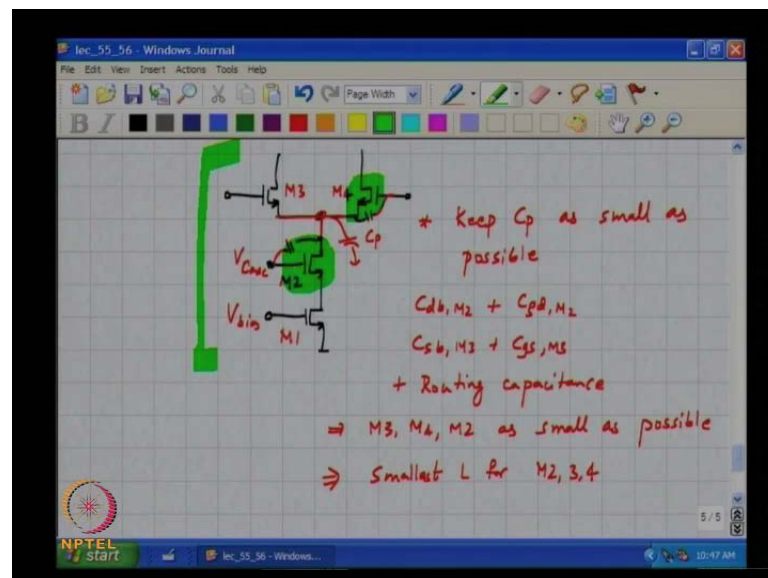 lec_55_56 - Windows Journal
File Edit View Insert Actions Tools Help
Page Width
B I
M3
M4
Cp
Vcasc
M2
Vbias
M1
* Keep Cp as small as
possible
Cdb,M2 + Cgd,M2
Csb,M3 + Cgs,M3
+ Routing capacitance
⇒ M3, M4, M2 as small as possible
⇒ Smallest L for M2,3,4
5/5
NPTEL
start
lec_55_56 - Windows...
10:47 AM